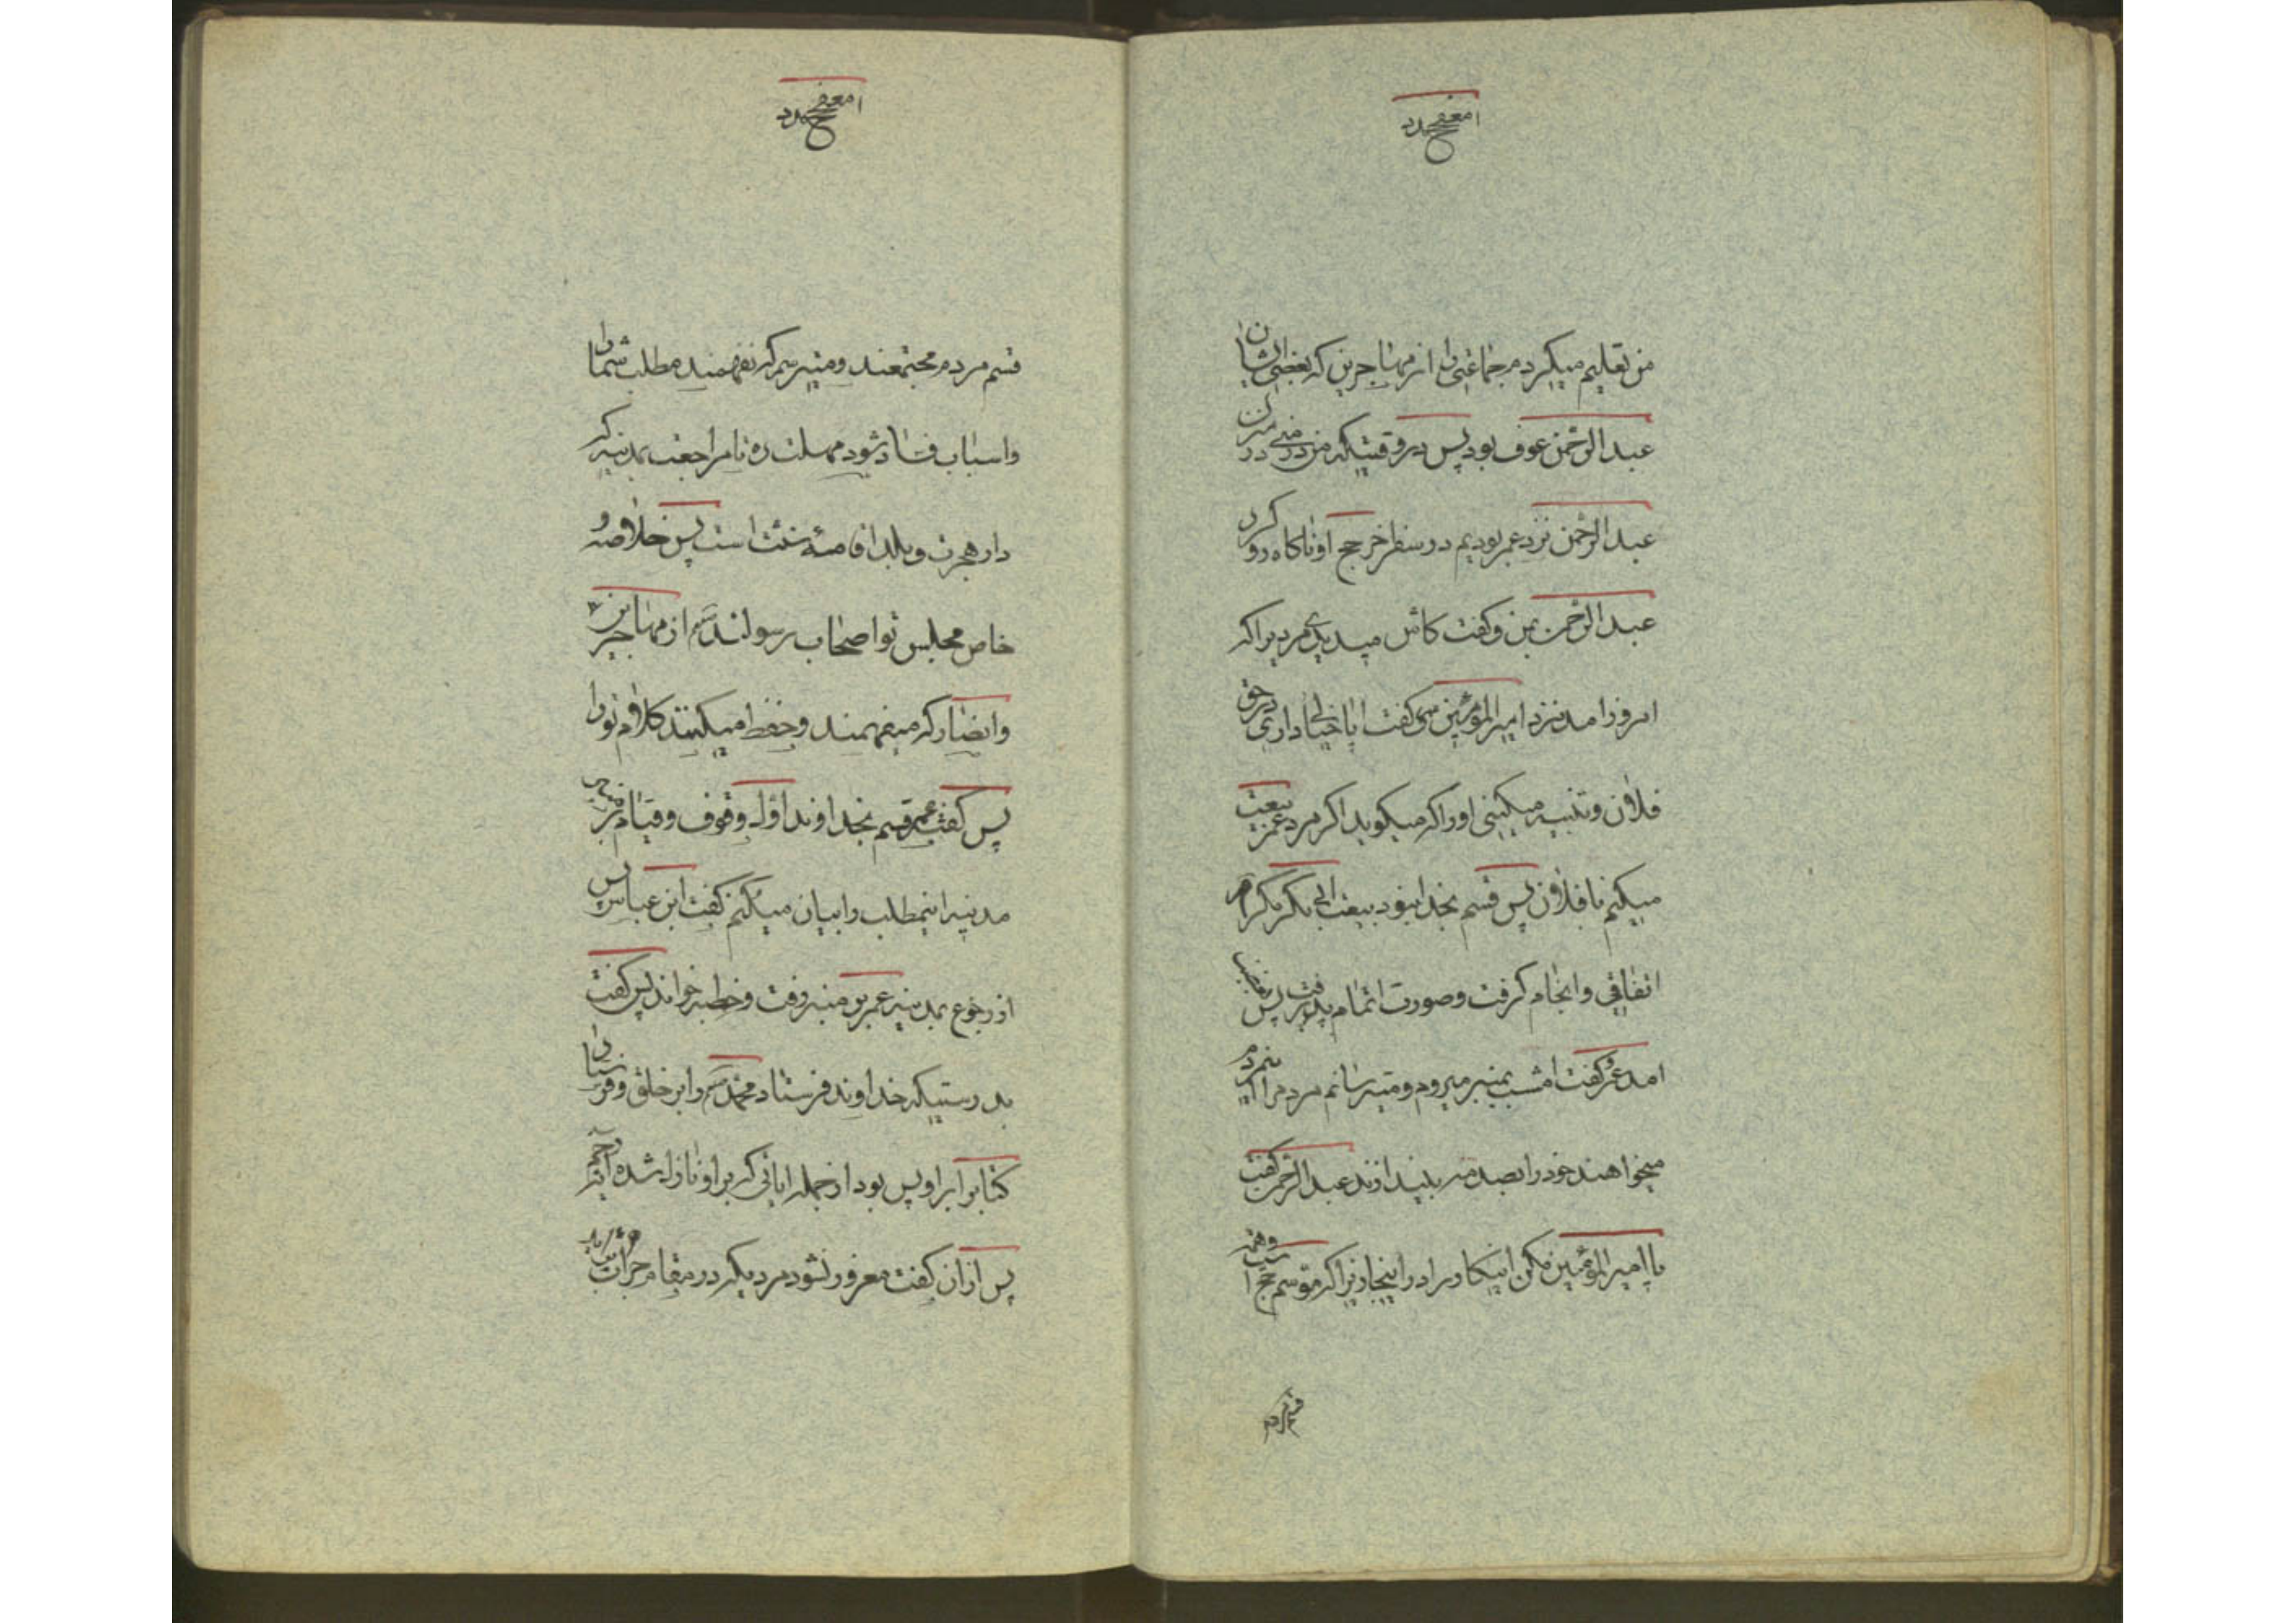 من تعلیم میکردم جماعتی را از مهاجرین که بعضی ایشان
عبدالرحمن عوف بود پس در وقتیکه من در منی منزل در
عبدالرحمن نزد عمر بودیم در سفر اخر حج او ناکاه رو کرد
عبدالرحمن بمن و کفت کاش میدیدی مردیرا که
امروز امد نزد امیرالمؤمنین می کفت ایا خیال داری در حق
فلان و تنبیه میکینی او را که میکوید اکر مرد عمر بیعت
میکنم با فلان پس قسم بخدا نبود بیعت ابی بکر مکر امر
اتفاقی و انجام کرفت و صورت اتمام پذیرفت پس بغضب
امد عمر و کفت امشب بمنبر میروم و میترسانم مردم را اینمردم
میخواهند خود را بصدمه بیندازند عبدالرحمن کفت
یا امیرالمؤمنین مکن اینکار را در اینجا زیرا که موسم حج است و همه
قسم مردم
قسم مردم مجتمعند و میترسم که نفهمند مطلب شما را
و اسباب فساد شود مهلت ده تا مراجعت بمدینه که
دار هجرت و بلد اقامه سنت است پس خلاصه و
خاص مجلس تو اصحاب رسولند از مهاجرین
و انصار که میفهمند و حفظ میکینند کلام تو را
پس کفت عمر قسم بخداوند اول وقوف و قیام من در
مدینه اینمطلب را بیان میکنم کفت ابن عباس پس
از رجوع بمدینه عمر بر منبر رفت و خطبه خواند پس کفت
بدرستیکه خداوند فرستاد محمد را بر خلق و فرستاد
کتاب را بر او پس بود از جمله ایاتی که بر او نازل شده ایه رجم
پس از ان کفت مغرور نشود مرد دیکر در مقام جرات